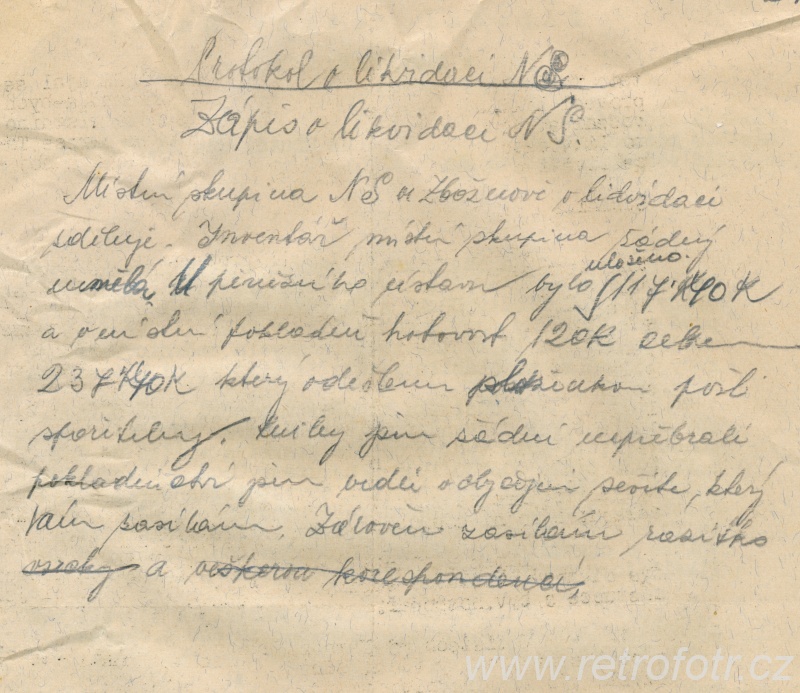 Protokol o likvidaci NS
Zápis o likvidaci NS.
Místní skupina NS ve Zbožnově o likvidaci
sděluje. Inventář místní skupina žádný
neměla, U peněžního ústavu bylo uloženo 117K40K
a v místní pokladně hotovost 120K celkem
237K40K který odešlem pošt
spořitelny. knihy jsem žádní nepřebrali
pokladničství jsem vedl v obyčejném sešitě, který
Vám zasílám. Zároveň zasílám razítko
a veškerou korespondenci,
www.retrofotr.cz